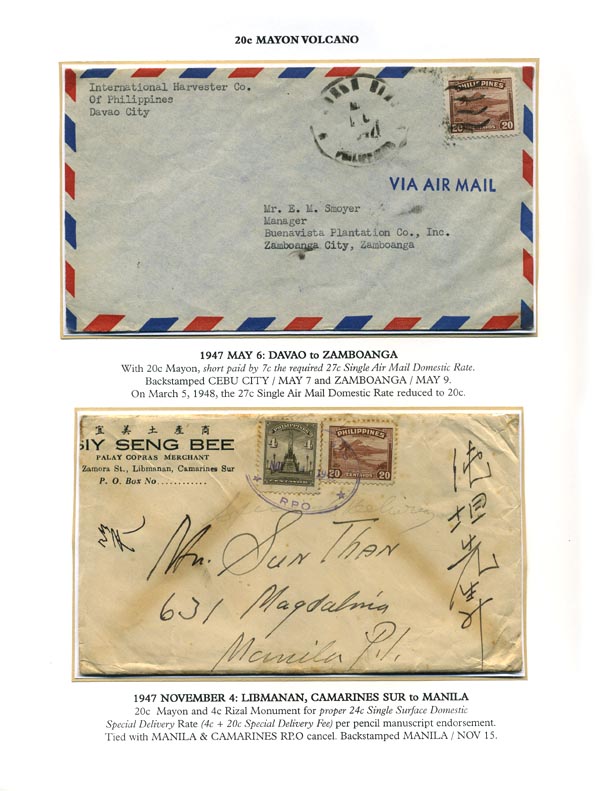 20c MAYON VOLCANO
International Harvester Co.
Of Philippines
Davao City
PHILIPPINES
20 CENTAVOS 20
VIA AIR MAIL
Mr. E. M. Smoyer
Manager
Buenavista Plantation Co., Inc.
Zamboanga City, Zamboanga
1947 MAY 6: DAVAO to ZAMBOANGA
With 20c Mayon, short paid by 7c the required 27c Single Air Mail Domestic Rate.
Backstamped CEBU CITY / MAY 7 and ZAMBOANGA / MAY 9.
On March 5, 1948, the 27c Single Air Mail Domestic Rate reduced to 20c.
宜美土產商
SIY SENG BEE
PALAY COPRAS MERCHANT
Zamora St., Libmanan, Camarines Sur
P. O. Box No............
PHILIPPINES
4 4
PHILIPPINES
20 CENTAVOS 20
RPO
Special Delivery
Mr. Sun Than
631 Magdalina
Manila P.I.
先生
1947 NOVEMBER 4: LIBMANAN, CAMARINES SUR to MANILA
20c Mayon and 4c Rizal Monument for proper 24c Single Surface Domestic
Special Delivery Rate (4c + 20c Special Delivery Fee) per pencil manuscript endorsement.
Tied with MANILA & CAMARINES RP.O cancel. Backstamped MANILA / NOV 15.